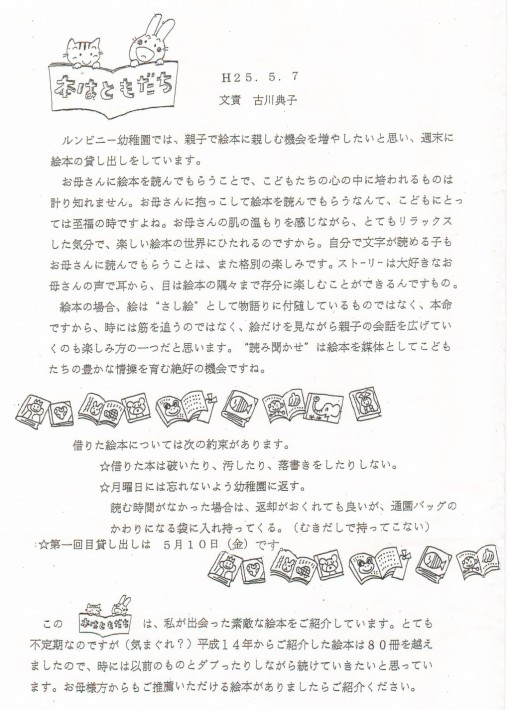 本はともだち
H25.5.7
文責 古川典子
ルンビニー幼稚園では、親子で絵本に親しむ機会を増やしたいと思い、週末に
絵本の貸し出しをしています。
お母さんに絵本を読んでもらうことで、こどもたちの心の中に培われるものは
計り知れません。お母さんに抱っこして絵本を読んでもらうなんて、こどもにとっ
ては至福の時ですよね。お母さんの肌の温もりを感じながら、とてもリラックス
した気分で、楽しい絵本の世界にひたれるのですから。自分で文字が読める子も
お母さんに読んでもらうことは、また格別の楽しみです。ストーリーは大好きなお
母さんの声で耳から、目は絵本の隅々まで存分に楽しむことができるんですもの。
絵本の場合、絵は“さし絵”として物語りに付随しているものではなく、本命
ですから、時には筋を追うのではなく、絵だけを見ながら親子の会話を広げてい
くのも楽しみ方の一つだと思います。“読み聞かせ”は絵本を媒体としてこども
たちの豊かな情操を育む絶好の機会ですね。
借りた絵本については次の約束があります。
☆借りた本は破いたり、汚したり、落書きをしたりしない。
☆月曜日には忘れないよう幼稚園に返す。
読む時間がなかった場合は、返却がおくれても良いが、通園バッグの
かわりになる袋に入れ持ってくる。（むきだしで持ってこない）
☆第一回目貸し出しは 5月10日（金）です
この 本はともだち は、私が出会った素敵な絵本をご紹介しています。とても
不定期なのですが（気まぐれ？）平成14年からご紹介した絵本は80冊を越え
ましたので、時には以前のものとダブったりしながら続けていきたいと思ってい
ます。お母様方からもご推薦いただける絵本がありましたらご紹介ください。